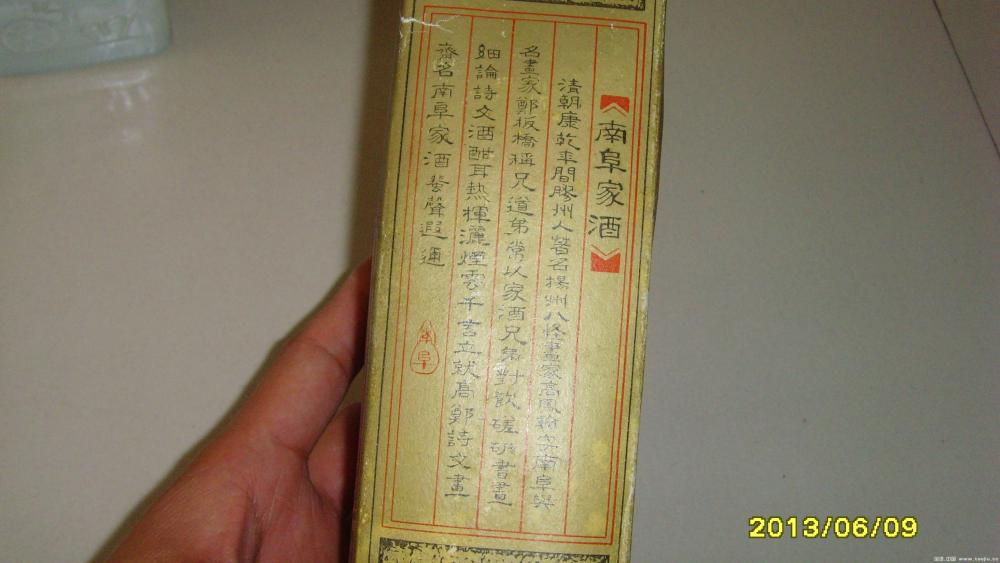 南阜家酒
清朝康乾年間膠州人著名揚州八怪畫家高鳳翰字南阜與
名畫家鄭板橋稱兄道弟常以家酒兄弟對飲磋研書畫
細論詩文酒酣耳熱揮灑煙雲千言立就高鄭詩文畫
齊名南阜家酒譽聲遐邇
南阜
2013/06/09